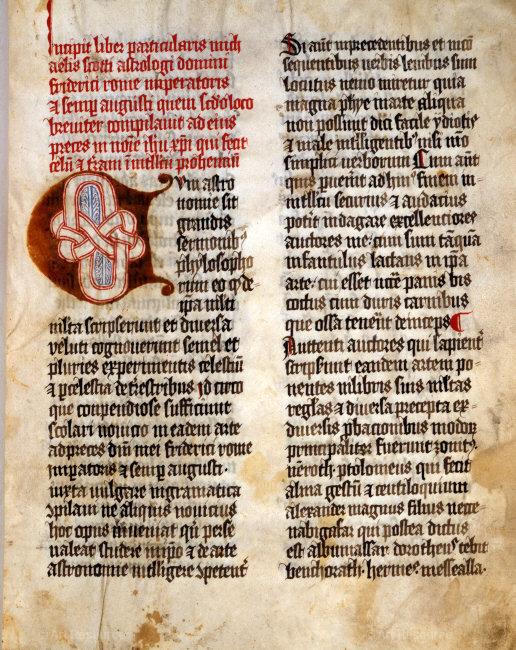 Incipit liber particularis mich
aelis scotti astrologi domini
friderici rome imperatoris
⁊ semp augusti quem scdo loco
breviter compilavit ad eius
preces in noīe ihu xpī qui fecit
celū ⁊ trām
Cum astro
nomie sit
grandis
sermonibꝰ
phylosopho
rum eo qꝫ de
ipa multi
multa scripserunt et diversa
veluti cognoverunt semel et
pluries experimentis celestiū
⁊ de trestribus id circo
que conpendiose sufficiunt
scolari novicio in eadem arte
ad preces dnī mei friderici rome
imperatoris ⁊ semp augusti
iuxta vulgare in gramatica
9pilavi ne aliquis novicius
hoc opus inveniat qui perse
valeat studere in ipo ⁊ de arte
astronomie intelligere 9petent
Si aūt in precedentibus et in
sequentibus verbis levibus sum
locutus nemo miretur quia
magna phye in arte aliqua
non possunt dici facile ydiotis
⁊ male intelligentibꝰ nisi mō
simplici verborum Cum aūt
quis puenit ad finem in
securius ⁊ audacius
potit indagare excellentiores
auctores me cum sum tāqua
infantulus lactans in ipa
arte cui esset panis bis
coctus cum duris carnibus
que ossa tenent deinceps
Autenti auctores qui sapient
scripserunt eandem artem po
nentes in libris suis multas
reglas ⁊ diversa precepta ex
diversis pbacionibus modoꝝ
principaliter fuerunt
ptolomeus qui fecit
alma gestū ⁊ centiloquium
alexander magnus filius necte
nabi qui postea dictus
est albumassar dorotheus tebit
benchorath hermes messealla